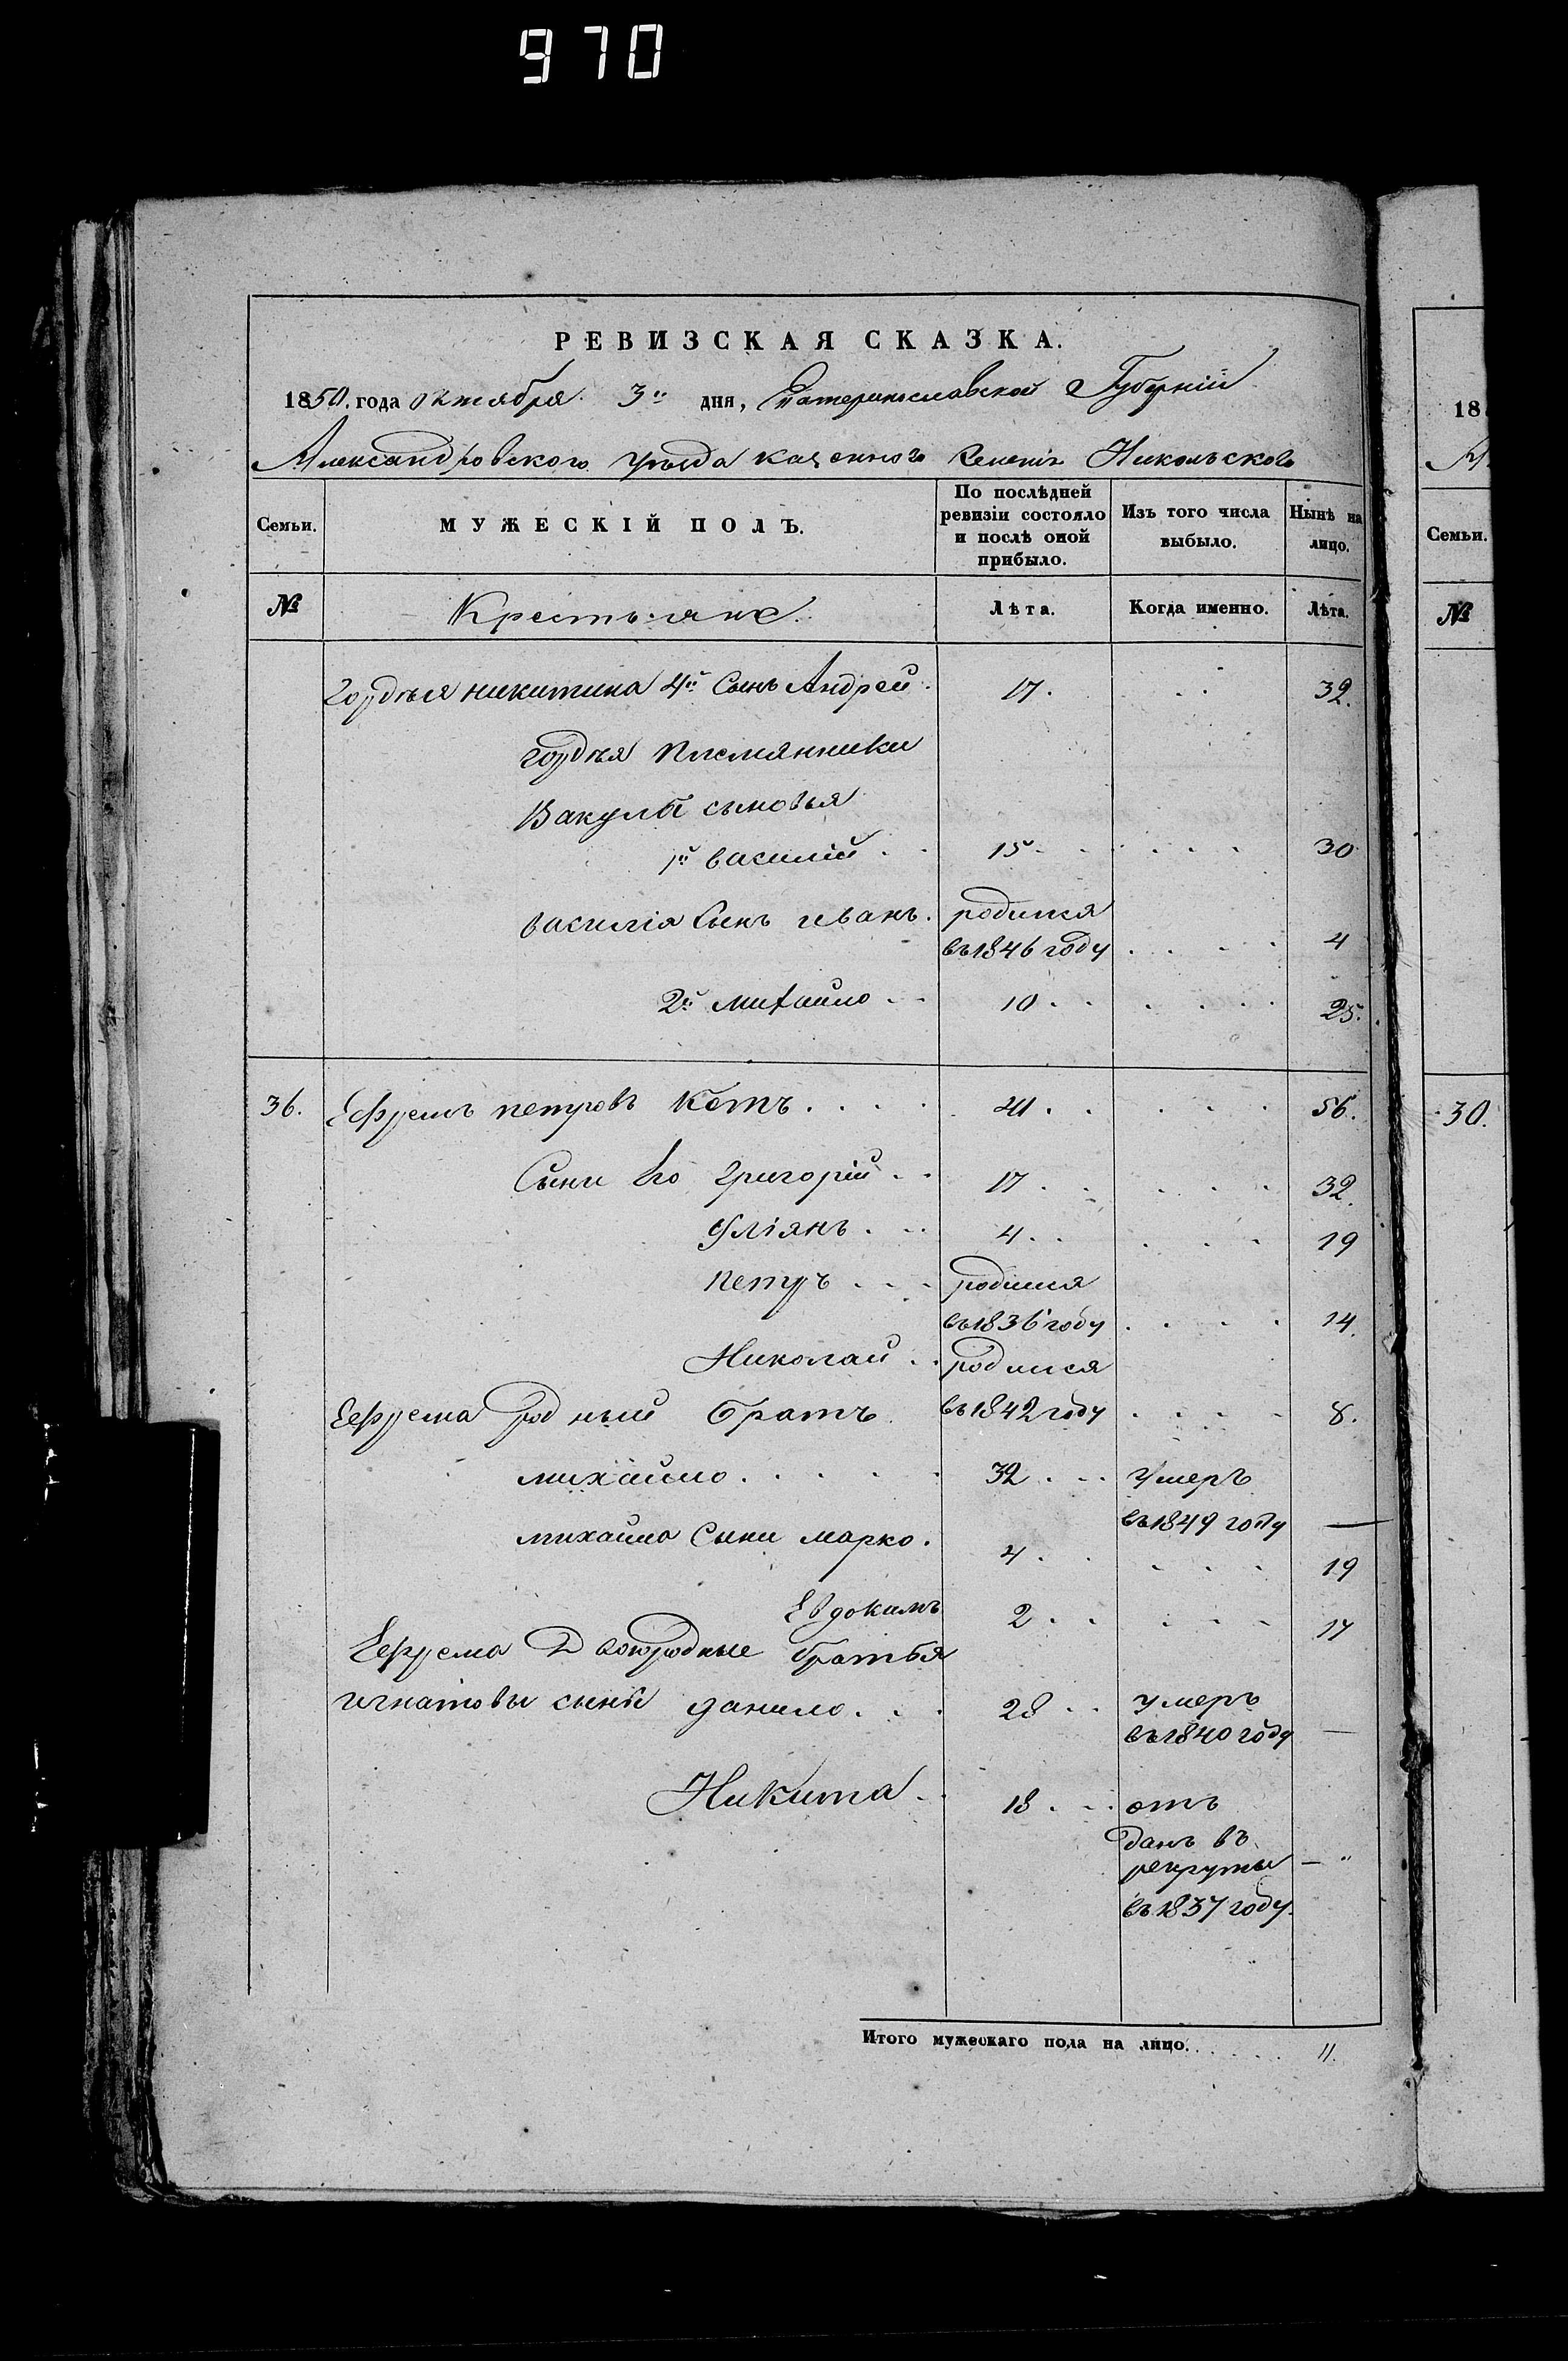 970
РЕВИЗСКАЯ СКАЗКА.
1850. года октября 3го дня, Екатеринославской Губерній
Александровского уѣзда казенного селенія Никольского
Семьи. МУЖЕСКІЙ ПОЛЪ. По послѣдней ревизіи состояло и послѣ оной прибыло. Изъ того числа выбыло. Нынѣ на лицо.
№ Крестьяне. Лѣта. Когда именно. Лѣта.
Гордѣя никитина 4й Сынъ Андрей. 17. 32.
гордѣя племянники
Вакулы сыновья
1й василій 15 30
василія Сынъ иванъ. родился
въ 1846 году 4
2й михайло 10 25.
36. Ефремъ петровъ Котъ 41 56.
Сыны Его григорій 17 32.
Уліянъ 4 19
петръ родился
въ 1836 году 14.
Николай родился
Ефрема родный братъ въ 1842 году 8.
михайло 32 умеръ
въ 1849 году —
михайла Сыны марко. 4 19
Евдокимъ 2 17
Ефрема Двоюродные братья
игнатовы сыны данило 28 умеръ
въ 1840 году —
Никита 18 отъ
данъ въ
рекруты — "
въ 1837 году.
Итого мужескаго пола на лицо. 11.
18
Семьи.
№
30.